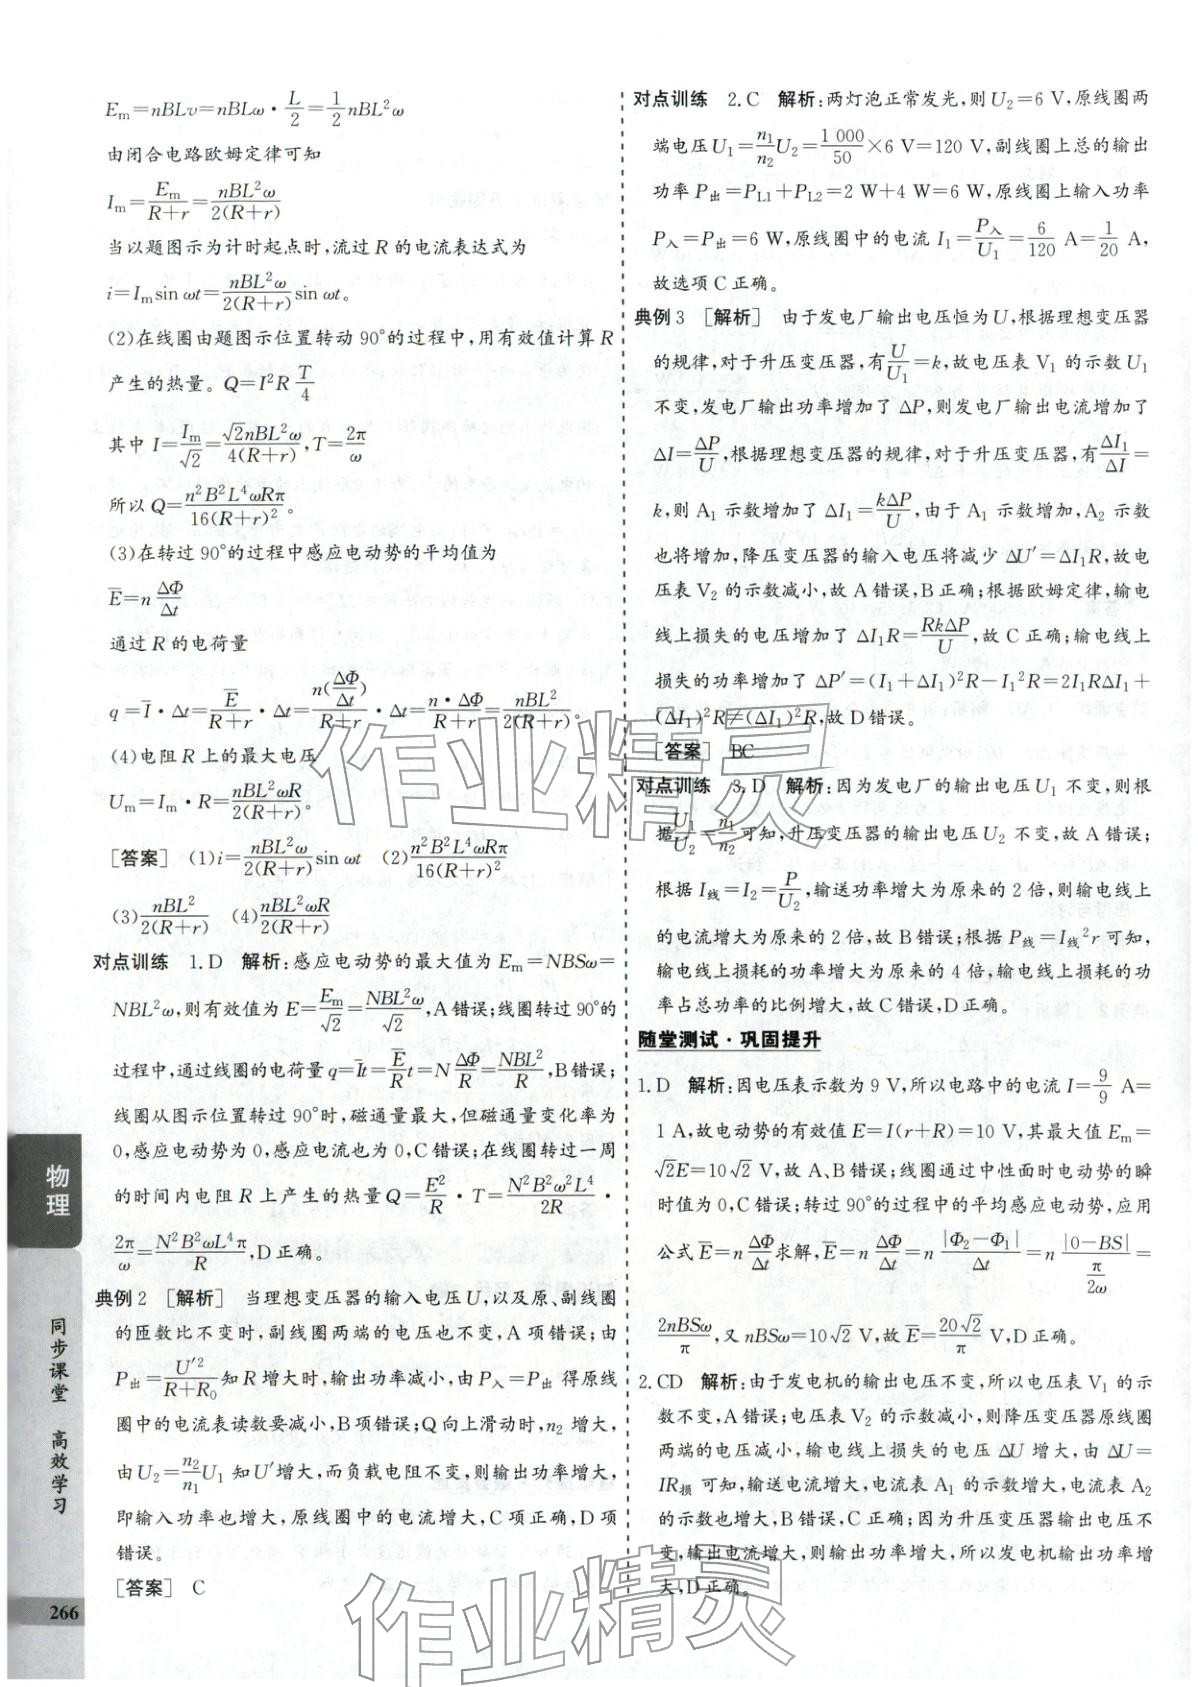 E_m=nBLv=nBLω·L/2=1/2 nBL²ω
由闭合电路欧姆定律可知
I_m=E_m/(R+r)=nBL²ω/2(R+r)
当以题图示为计时起点时,流过 R 的电流表达式为
i=I_m sin ωt=nBL²ω/2(R+r) sin ωt。
(2)在线圈由题图示位置转动 90°的过程中,用有效值计算 R
产生的热量。Q=I²R T/4
其中 I=I_m/√2=√2nBL²ω/4(R+r),T=2π/ω
所以 Q=n²B²L⁴ωRπ/16(R+r)²。
(3)在转过 90°的过程中感应电动势的平均值为
E̅=n ΔΦ/Δt
通过 R 的电荷量
q=I̅·Δt=E̅/(R+r)·Δt=n(ΔΦ/Δt)/(R+r)·Δt=n·ΔΦ/(R+r)=nBL²/2(R+r)。
(4)电阻 R 上的最大电压
U_m=I_m·R=nBL²ωR/2(R+r)。
[答案] (1)i=nBL²ω/2(R+r) sin ωt (2)n²B²L⁴ωRπ/16(R+r)²
(3)nBL²/2(R+r) (4)nBL²ωR/2(R+r)
对点训练 1.D 解析:感应电动势的最大值为 E_m=NBSω=
NBL²ω,则有效值为 E=E_m/√2=NBL²ω/√2,A错误;线圈转过90°的
过程中,通过线圈的电荷量 q=I̅t=E̅/R t=N ΔΦ/R=NBL²/R,B错误;
线圈从图示位置转过 90°时,磁通量最大,但磁通量变化率为
0,感应电动势为 0,感应电流也为 0,C 错误;在线圈转过一周
的时间内电阻 R 上产生的热量 Q=E²/R·T=N²B²ω²L⁴/2R·
2π/ω=N²B²ωL⁴π/R,D正确。
典例 2 [解析] 当理想变压器的输入电压U,以及原、副线圈
的匝数比不变时,副线圈两端的电压也不变,A 项错误;由
P出=U′²/(R+R₀)知 R 增大时,输出功率减小,由 P入=P出 得原线
圈中的电流表读数要减小,B项错误;Q向上滑动时,n₂ 增大,
由 U₂=n₂/n₁ U₁ 知 U′增大,而负载电阻不变,则输出功率增大,
即输入功率也增大,原线圈中的电流增大,C项正确,D项
错误。
[答案] C
对点训练 2.C 解析:两灯泡正常发光,则 U₂=6 V,原线圈两
端电压 U₁=n₁/n₂ U₂=1 000/50×6 V=120 V,副线圈上总的输出
功率 P出=P_L1+P_L2=2 W+4 W=6 W,原线圈上输入功率
P入=P出=6 W,原线圈中的电流 I₁=P入/U₁=6/120 A=1/20 A,
故选项 C 正确。
典例 3 [解析] 由于发电厂输出电压恒为U,根据理想变压器
的规律,对于升压变压器,有U/U₁=k,故电压表 V₁ 的示数 U₁
不变,发电厂输出功率增加了 ΔP,则发电厂输出电流增加了
ΔI=ΔP/U,根据理想变压器的规律,对于升压变压器,有ΔI₁/ΔI=
k,则 A₁ 示数增加了 ΔI₁=kΔP/U,由于 A₁ 示数增加,A₂ 示数
也将增加,降压变压器的输入电压将减少 ΔU′=ΔI₁R,故电
压表 V₂ 的示数减小,故 A 错误,B正确;根据欧姆定律,输电
线上损失的电压增加了 ΔI₁R=RkΔP/U,故 C 正确;输电线上
损失的功率增加了 ΔP′=(I₁+ΔI₁)²R−I₁²R=2I₁RΔI₁+
(ΔI₁)²R≠(ΔI₁)²R,故 D错误。
[答案] BC
对点训练 3.D 解析:因为发电厂的输出电压U₁ 不变,则根
据:U₁/U₂=n₁/n₂可知,升压变压器的输出电压 U₂ 不变,故 A 错误;
根据 I线=I₂=P/U₂,输送功率增大为原来的 2 倍,则输电线上
的电流增大为原来的 2倍,故 B错误;根据 P线=I线²r 可知,
输电线上损耗的功率增大为原来的 4 倍,输电线上损耗的功
率占总功率的比例增大,故C错误,D正确。
随堂测试·巩固提升
1.D 解析:因电压表示数为 9 V,所以电路中的电流 I=9/9 A=
1 A,故电动势的有效值 E=I(r+R)=10 V,其最大值 E_m=
√2E=10√2 V,故A、B错误;线圈通过中性面时电动势的瞬
时值为 0,C错误;转过90°的过程中的平均感应电动势,应用
公式 E̅=n ΔΦ/Δt求解,E̅=n ΔΦ/Δt=n |Φ₂−Φ₁|/Δt=n |0−BS|/(π/2ω)=
2nBSω/π,又 nBSω=10√2 V,故 E̅=20√2/π V,D正确。
2.CD 解析:由于发电机的输出电压不变,所以电压表 V₁ 的示
数不变,A错误;电压表 V₂ 的示数减小,则降压变压器原线圈
两端的电压减小,输电线上损失的电压 ΔU 增大,由 ΔU=
IR损 可知,输送电流增大,电流表 A₁ 的示数增大,电流表 A₂
的示数也增大,B错误,C 正确;因为升压变压器输出电压不
变,输出电流增大,则输出功率增大,所以发电机输出功率增
大,D正确。
物理
同步课堂 高效学习
266
作业精灵
作业精灵